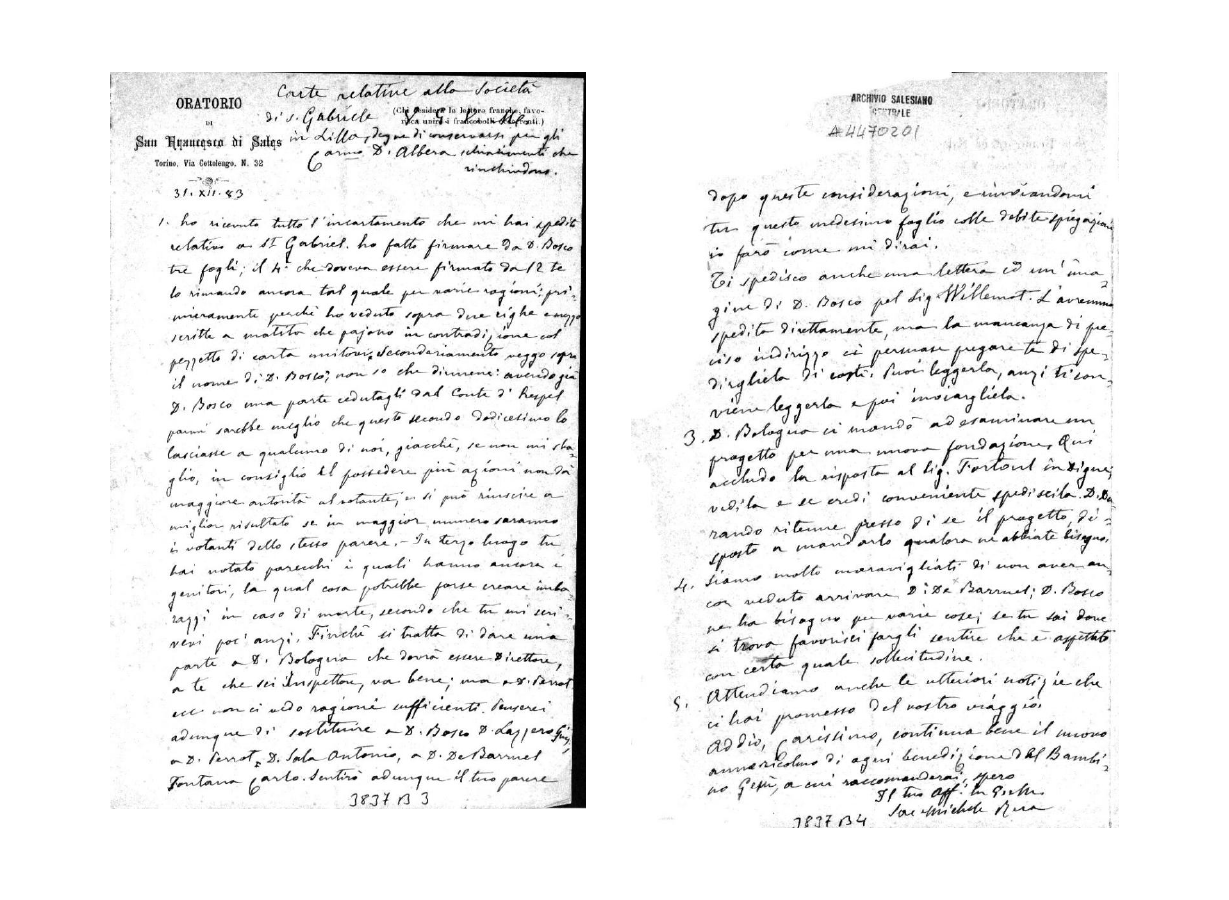 Carte relative alla Società
di S. Gabriele
in Lilla, degne di conservarsi per gli
schiarimenti che
rinchiudono.
ORATORIO
DI
San Francesco di Sales
Torino, Via Cottolengo, N. 32
(Chi desidera la lettera franca, favo-
risca unire i francobolli occorrenti.)
31.XII.83
Car.mo D. Albera
1. ho ricevuto tutto l'incartamento che mi hai spedito
relativo a St Gabriel. ho fatto firmare da D. Bosco
tre fogli; il 4° che doveva essere firmato da 12 te
lo rimando ancora tal quale per varie ragioni: pri-
mieramente perché ho veduto sopra due righe e mezzo
scritte a matita che pajono in contraddizione col
pezzetto di carta unitovi. Secondariamente veggo sopra
il nome di D. Bosco; non so che dirmene: avendo già
D. Bosco una parte cedutagli dal Conte d'Respel
parmi sarebbe meglio che questo secondo dodicesimo lo
lasciasse a qualcuno di noi, giacché, se non mi sba-
glio, in consiglio il possedere più azioni non dà
maggiore autorità al votante; e si può riuscire a
miglior risultato se in maggior numero saranno
i votanti dello stesso parere. - In terzo luogo tu
hai notato parecchi i quali hanno ancora i
genitori, la qual cosa potrebbe forse creare imba-
razzi in caso di morte, secondo che tu mi scri-
vevi poc'anzi. Finché si tratta di dare una
parte a D. Bologna che dovrà essere Direttore,
a te che sei Inspettore, va bene; ma a D. Perrot
ecc. non ci vedo ragione sufficiente. Penserei
adunque di sostituire a D. Bosco D. Lazzero Gius,
a D. Perrot, D. Sala Antonio, a D. De Barruel
Fontana Carlo. Sentirò adunque il tuo parere
3837 B 3
ARCHIVIO SALESIANO
CENTRALE
A4470201
dopo queste considerazioni, e rinviandomi
tu questo medesimo foglio colle debite spiegazioni
io farò come mi dirai.
Ti spedisco anche una lettera ed un'ima-
gine di D. Bosco pel Sig. Willemot. L'avremmo
spedita direttamente, ma la mancanza di pre-
ciso indirizzo ci persuase pregare te di spe-
dirgliela di costì. Puoi leggerla, anzi ti con-
viene leggerla e poi inviargliela.
3. D. Bologna ci mandò ad esaminare un
progetto per una nuova fondazione. Qui
accludo la risposta al Sig. Fortoul in Digne;
vedila e se credi conveniente spediscila. D. Du-
rando ritenne presso di se il progetto, di-
sposto a mandarlo qualora ne abbiate bisogno.
4. Siamo molto maravigliati di non aver an-
cor veduto arrivare D. De Barruel; D. Bosco
ne ha bisogno per varie cose; se tu sai dove
si trova favorisci fargli sentire che è aspettato
con certa quale sollecitudine.
5. Attendiamo anche le ulteriori notizie che
ci hai promesso del vostro viaggio.
Addio, Carissimo, continua bene il nuovo
anno ricolmo di ogni benedizione dal Bambi-
no Gesù, a cui raccomanderai, spero
Il tuo aff. in G.
Sac. Michele Rua
3837 B4